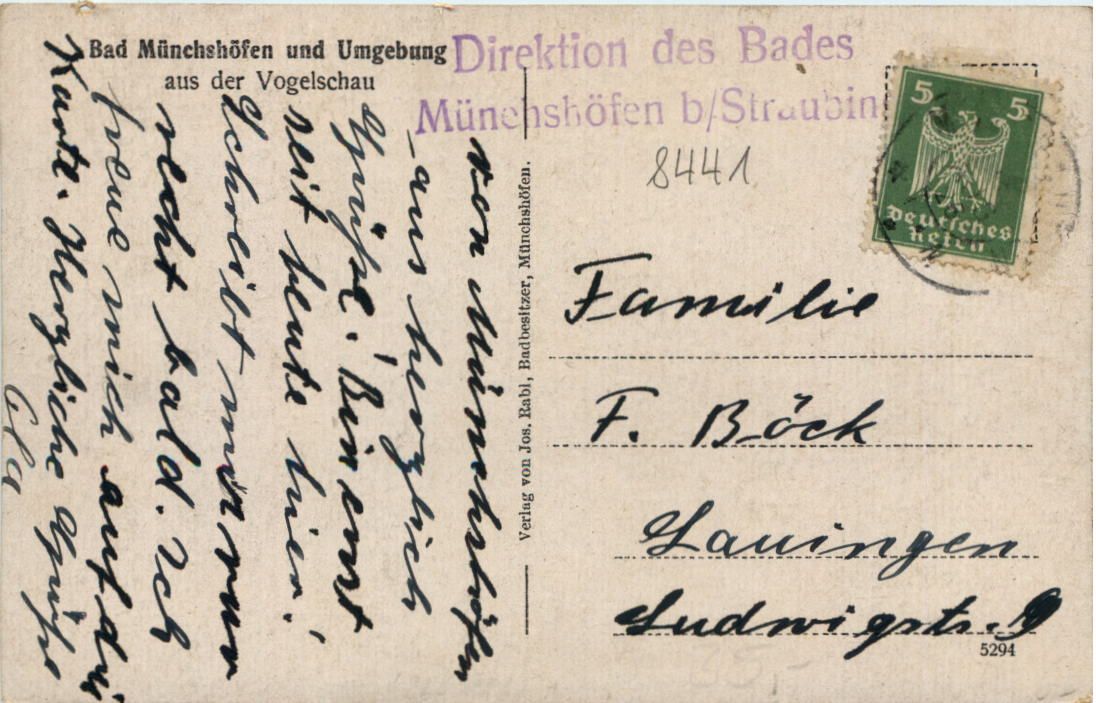 Bad Münchshöfen und Umgebung
aus der Vogelschau
Direktion des Bades
Münchshöfen b/Straubin
8441
5 5
Deutsches
Reich
von Münchshöfen
aus herzlich
Grüße! Bin erst
seit heute hier!
Schreibt mir nur
recht bald. Ich
freue mich auf die
Karte. Herzliche Grüße
Verlag von Jos. Rabl, Badbesitzer, Münchshöfen.
Familie
F. Böck
Lauingen
Ludwigstr. 9
5294